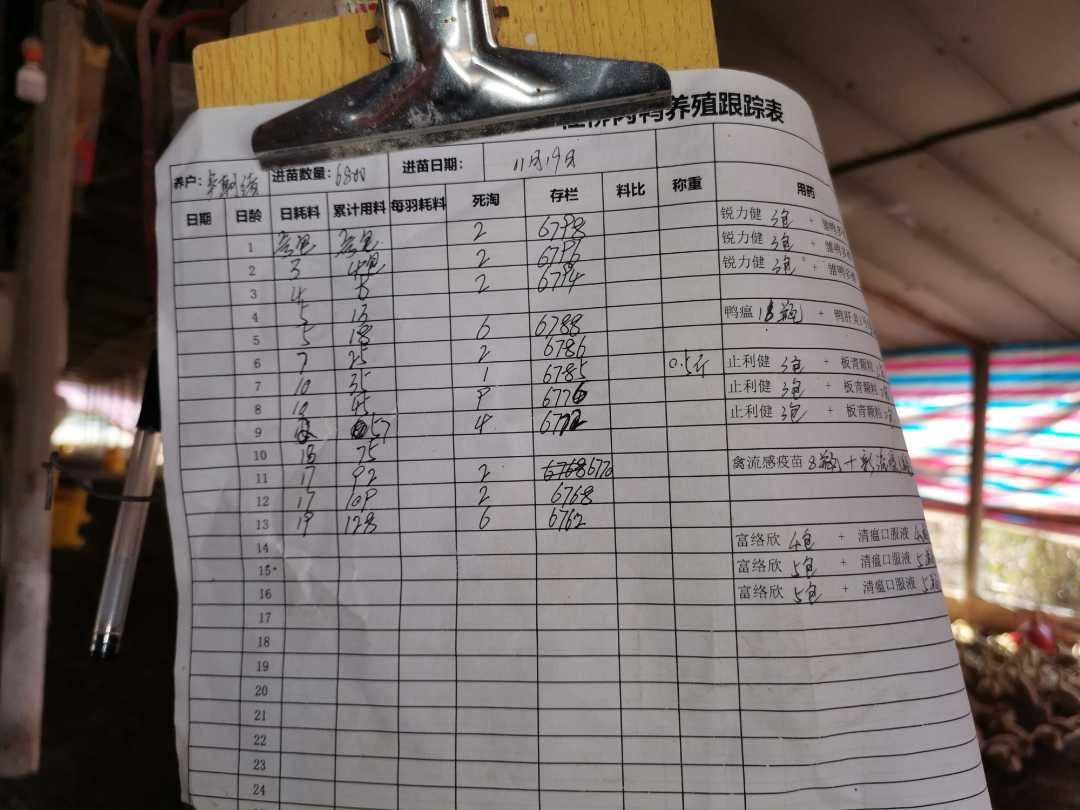 养殖跟踪表
养户： 进苗数量：6800 进苗日期： 11月19日
日期 日龄 日耗料 累计用料 每羽耗料 死淘 存栏 料比 称重 用药
1 2 6798 锐力健 3包 +
2 3 4包 2 6796 锐力健 3包 +
3 4 8 2 6794 锐力健 3包 +
4 5 13
5 5 18 6 6788 鸭瘟 瓶 + 鸭肝炎
6 7 25 2 6786
7 10 35 1 6785 0.5斤 止利健 3包 + 板青颗粒
8 10 45 9 6776 止利健 3包 + 板青颗粒
9 57 4 6772 止利健 3包 + 板青颗粒
10 18 75
11 17 92 2 6770 禽流感疫苗 8瓶 +
12 17 109 2 6768
13 19 128 6 6762
14 富络欣 4包 + 清瘟口服液
15 富络欣 5包 + 清瘟口服液
16 富络欣 5包 + 清瘟口服液
17
18
19
20
21
22
23
24